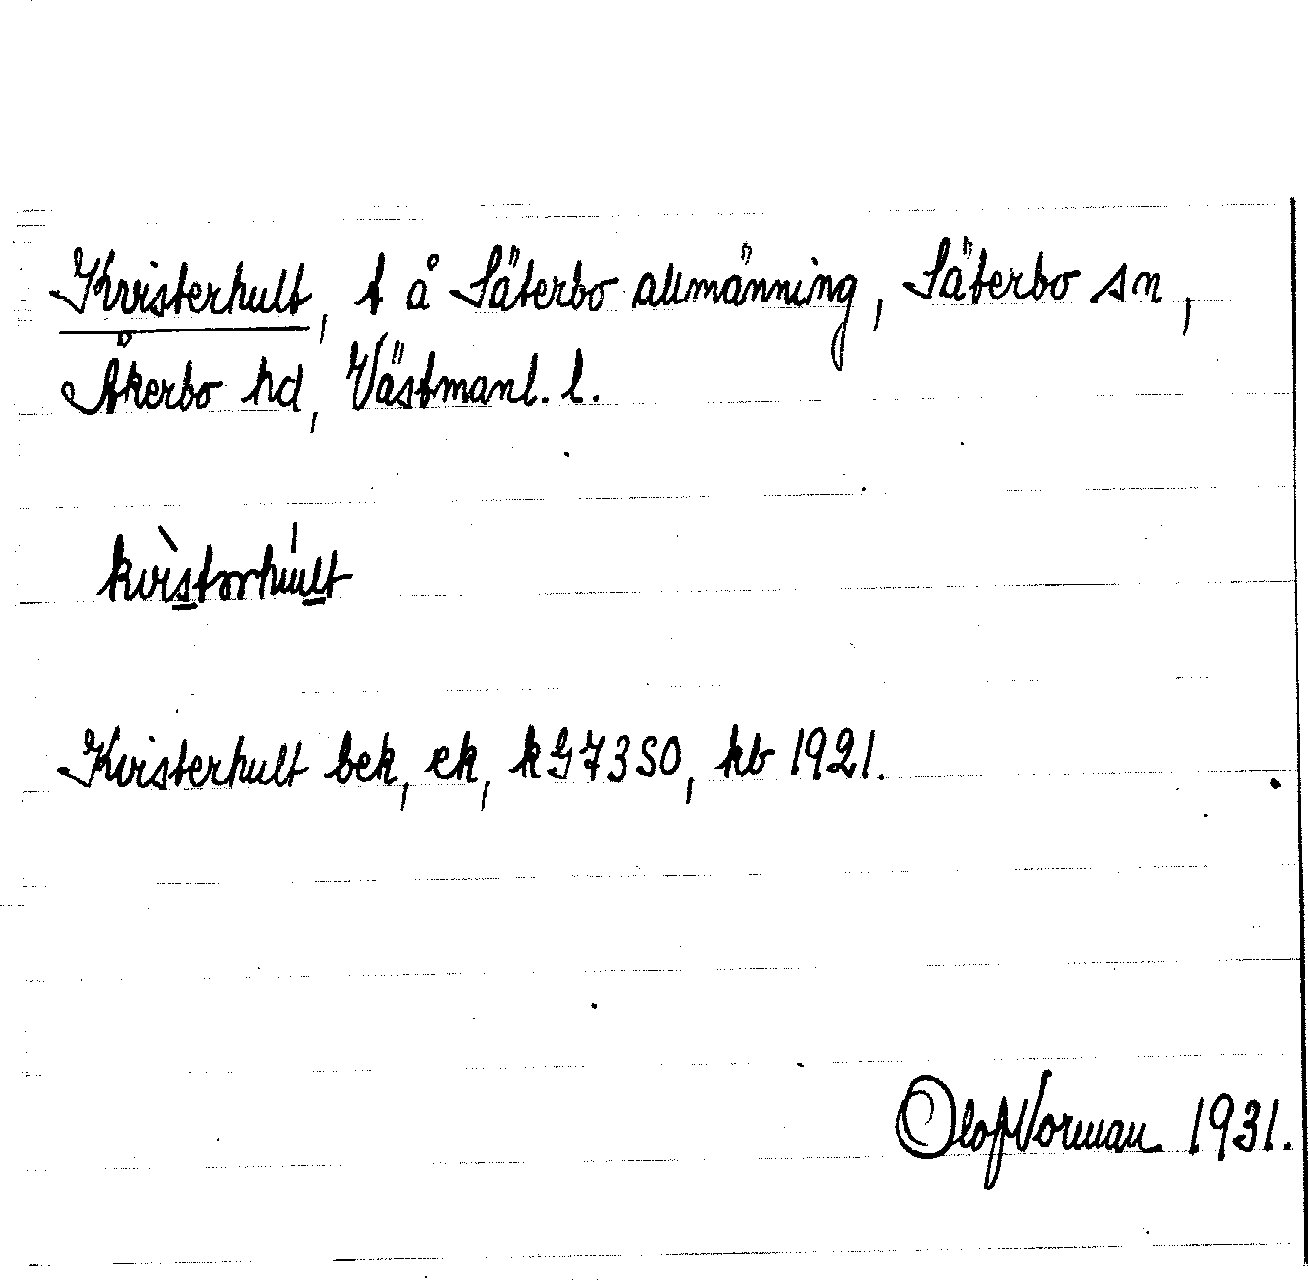 Kvisterhult, t å Säterbo allmänning, Säterbo sn,
Åkerbo hd, Västmanl. l.
Kvisterhult bek, ek, kG73SO, kb 1921.
Olof Norman 1931.